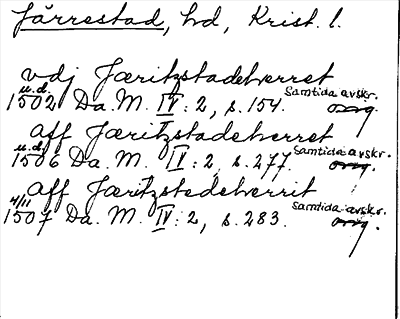 Järrestad, hd, Krist. l.
vdj Jæritzstadeherret
u.d. Samtida avskr.
1502 Da. M. IV: 2, s. 154. orig.
aff Jæritzstadeherret
u.d. Samtida avskr.
1506 Da. M. IV: 2, s. 277. orig.
aff Jæritzstedeherrit
4/11 Samtida avskr.
1507 Da. M. IV: 2, s. 283. orig.